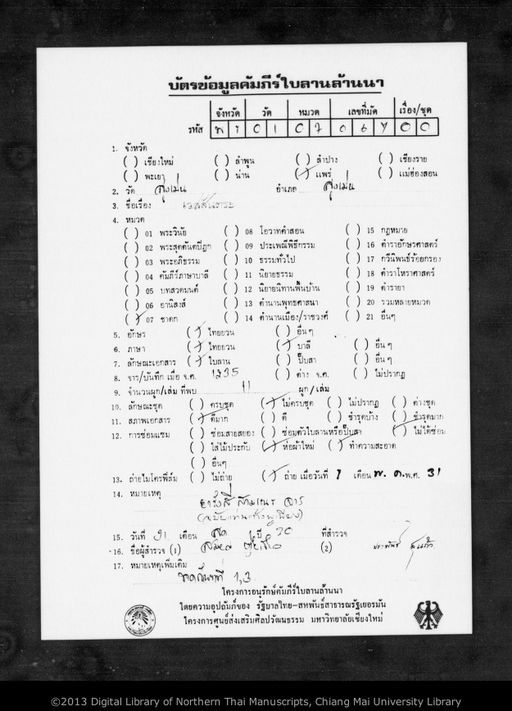 บัตรข้อมูลคัมภีร์ใบลานล้านนา
จังหวัด วัด หมวด เลขที่มัด เรื่อง/ชุด
รหัส 0 1 0 7 0 0
1. จังหวัด
( ) เชียงใหม่ ( ) ลำพูน ( ) ลำปาง ( ) เชียงราย
( ) พะเยา ( ) น่าน (/) แพร่ ( ) แม่ฮ่องสอน
2. วัด สูงเม่น อำเภอ สูงเม่น
3. ชื่อเรื่อง
4. หมวด
( ) 01 พระวินัย ( ) 08 โอวาทคำสอน ( ) 15 กฎหมาย
( ) 02 พระสุตตันตปิฎก ( ) 09 ประเพณีพิธีกรรม ( ) 16 ตำราอักษรศาสตร์
( ) 03 พระอภิธรรม ( ) 10 ธรรมทั่วไป ( ) 17 กวีนิพนธ์ร้อยกรอง
( ) 04 คัมภีร์ภาษาบาลี ( ) 11 นิยายธรรม ( ) 18 ตำราโหราศาสตร์
( ) 05 บทสวดมนต์ ( ) 12 นิยายนิทานพื้นบ้าน ( ) 19 ตำรายา
( ) 06 อานิสงส์ ( ) 13 ตำนานพุทธศาสนา ( ) 20 รวมหลายหมวด
(/) 07 ชาดก ( ) 14 ตำนานเมือง/ราชวงศ์ ( ) 21 อื่นๆ
5. อักษร (/) ไทยยวน ( ) อื่นๆ
6. ภาษา (/) ไทยยวน (/) บาลี ( ) อื่นๆ
7. ลักษณะเอกสาร (/) ใบลาน ( ) ปั๊บสา ( ) อื่นๆ
8. จาร/บันทึก เมื่อ จ.ศ. 1235 ( ) ต่าง จ.ศ. ( ) ไม่ปรากฏ
9. จำนวนผูก/เล่ม ที่พบ 11 ผูก/เล่ม
10. ลักษณะชุด ( ) ครบชุด (/) ไม่ครบชุด ( ) ไม่ปรากฏ ( ) ต่างชุด
11. สภาพเอกสาร (/) ดีมาก ( ) ดี ( ) ชำรุดบ้าง ( ) ชำรุดมาก
12. การซ่อมแซม ( ) ซ่อมสายสยอง ( ) ซ่อมตัวใบลานหรือปั๊บสา (/) ไม่ได้ซ่อม
( ) ใส่ไม้ประกับ (/) ห่อผ้าใหม่ (/) ทำความสะอาด
( ) อื่นๆ
13. ถ่ายไมโครฟิล์ม ( ) ไม่ถ่าย (/) ถ่าย เมื่อวันที่ 7 เดือน พ.ค. พ.ศ. 31
14. หมายเหตุ
15. วันที่ เดือน ปี 30 ที่สำรวจ
16. ชื่อผู้สำรวจ (1) (2)
17. หมายเหตุเพิ่มเติม
1,3
โครงการอนุรักษ์คัมภีร์ใบลานล้านนา
โดยความอุปถัมภ์ของ รัฐบาลไทย-สหพันธ์สาธารณรัฐเยอรมัน
โครงการศูนย์ส่งเสริมศิลปวัฒนธรรม มหาวิทยาลัยเชียงใหม่
©2013 Digital Library of Northern Thai Manuscripts, Chiang Mai University Library